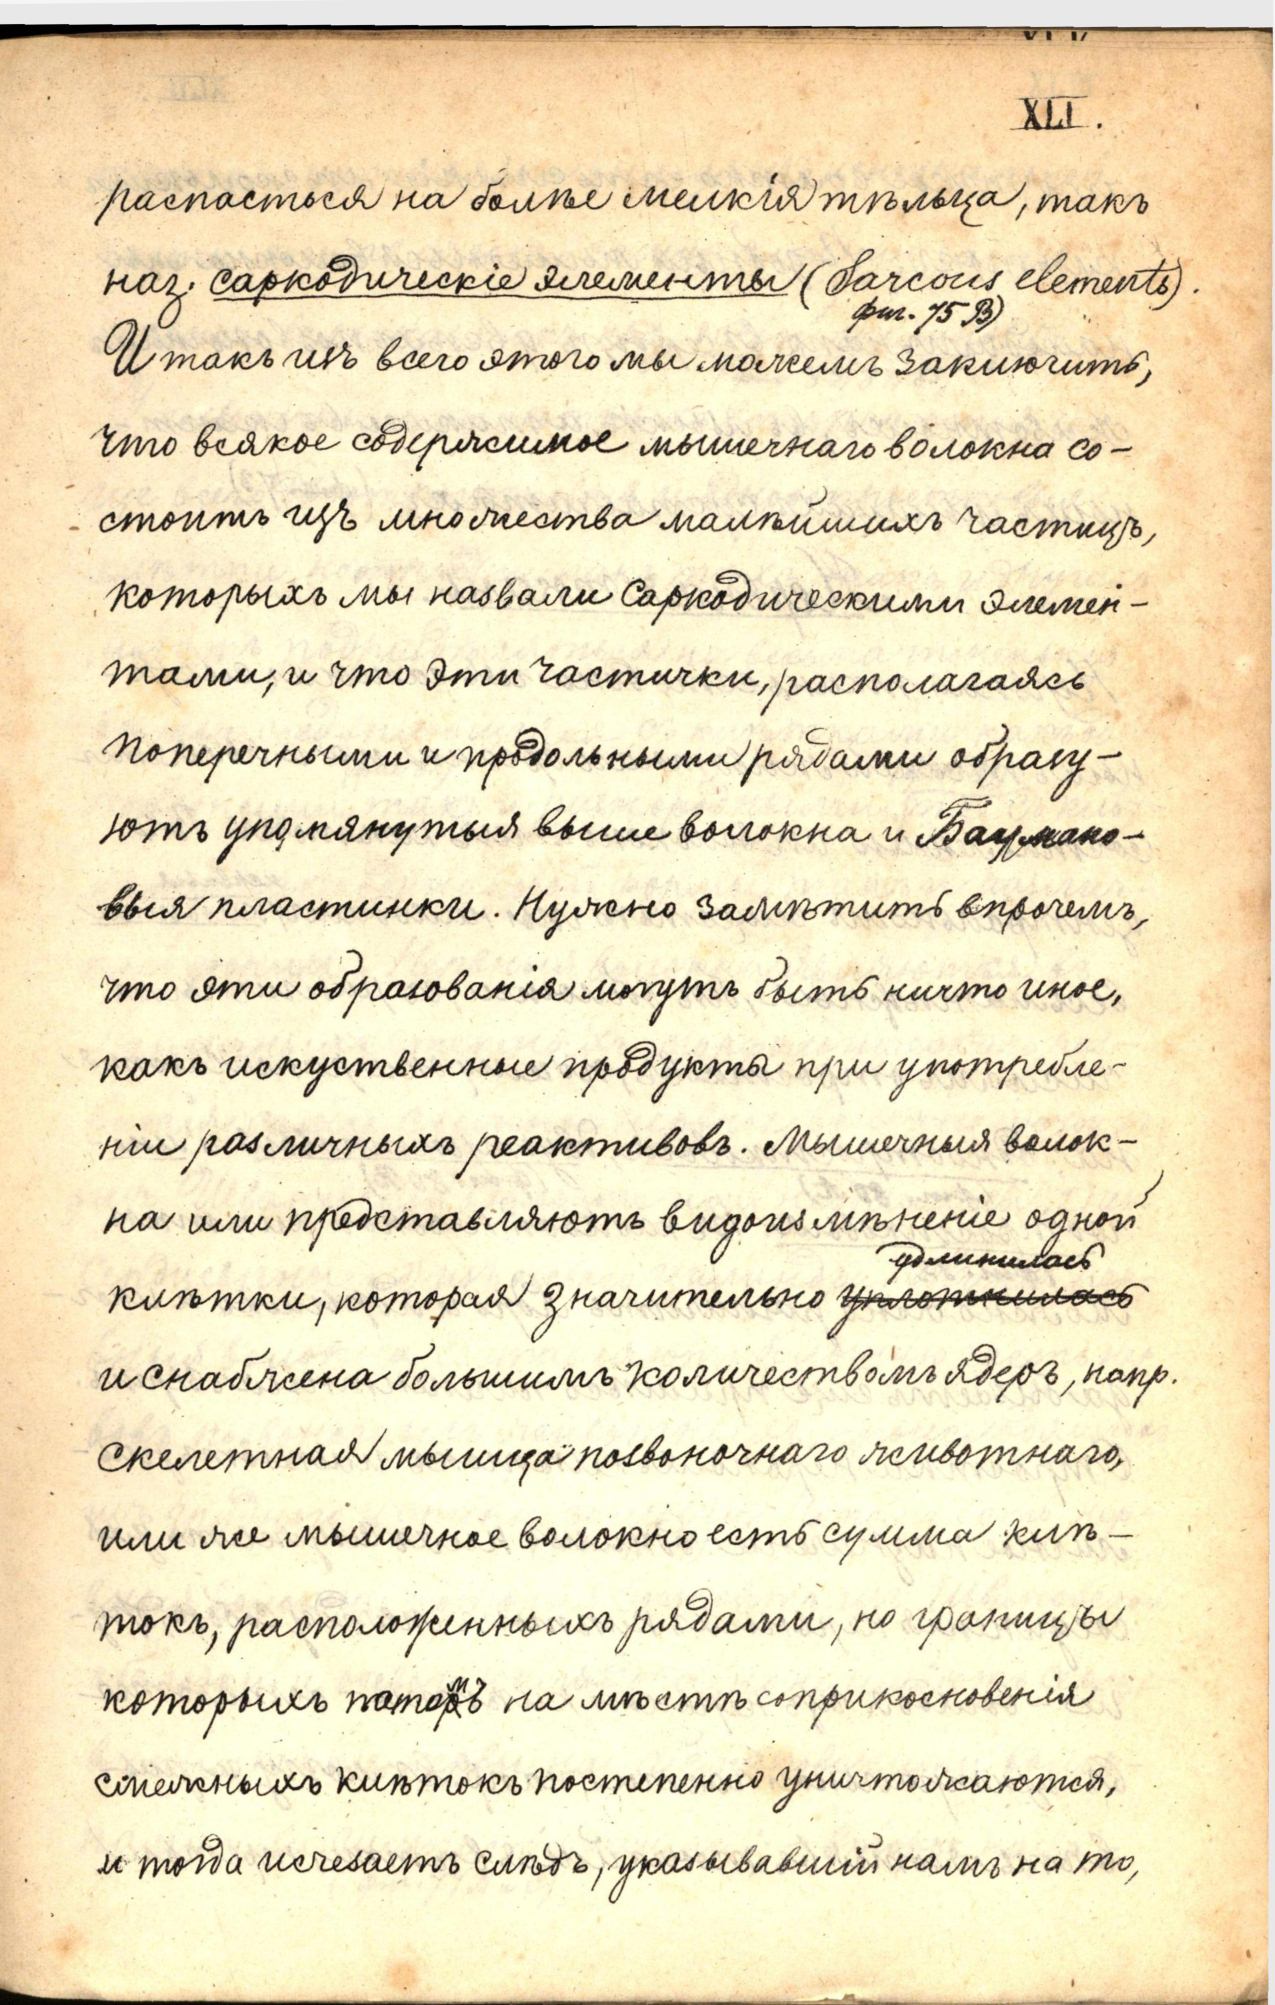 XLI.
распасться на болѣе мелкія тѣльца, такъ
наз. саркодическіе элементы (Sarcous elements).
фиг. 75 В)
Итакъ изъ всего этого мы можемъ заключить,
что всякое содержимое мышечнаго волокна со-
стоитъ изъ множества малѣйшихъ частицъ,
которыхъ мы назвали саркодическими элемен-
тами, и что эти частички, располагаясь
поперечными и продольными рядами образу-
ютъ упомянутыя выше волокна и Баумано-
выя пластинки. Нужно замѣтить впрочемъ,
что эти образованія могутъ быть ничто иное,
какъ искуственные продукты при употребле-
ніи различныхъ реактивовъ. Мышечныя волок-
на или представляютъ видоизмѣненіе одной
удлинилась
клѣтки, которая значительно уплотнилась
и снабжена большимъ количествомъ ядеръ, напр.
скелетная мышца позвоночнаго животнаго,
или же мышечное волокно есть сумма клѣ-
токъ, расположенныхъ рядами, но границы
которыхъ потомъ на мѣстѣ соприкосновенія
смежныхъ клѣтокъ постепенно уничтожаются,
и тогда исчезаетъ слѣдъ, указывавшій намъ на то,